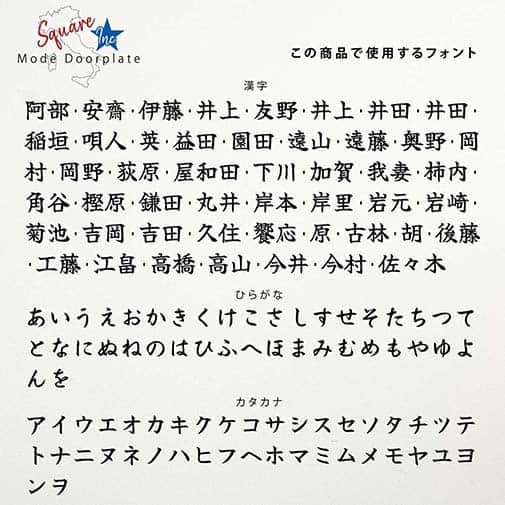 Square Inc
Mode Doorplate
この商品で使用するフォント
漢字
阿部・安齋・伊藤・井上・友野・井上・井田・井田・
稲垣・唄人・英・益田・園田・遠山・遠藤・奥野・岡
村・岡野・荻原・屋和田・下川・加賀・我妻・柿内・
角谷・樫原・鎌田・丸井・岸本・岸里・岩元・岩崎・
菊池・吉岡・吉田・久住・饗応・原・古林・胡・後藤
・工藤・江畠・高橋・高山・今井・今村・佐々木
ひらがな
あいうえおかきくけこさしすせそたちつて
となにぬねのはひふへほまみむめもやゆよ
んを
カタカナ
アイウエオカキクケコサシスセソタチツテ
トナニヌネノハヒフヘホマミムメモヤユヨ
ンヲ